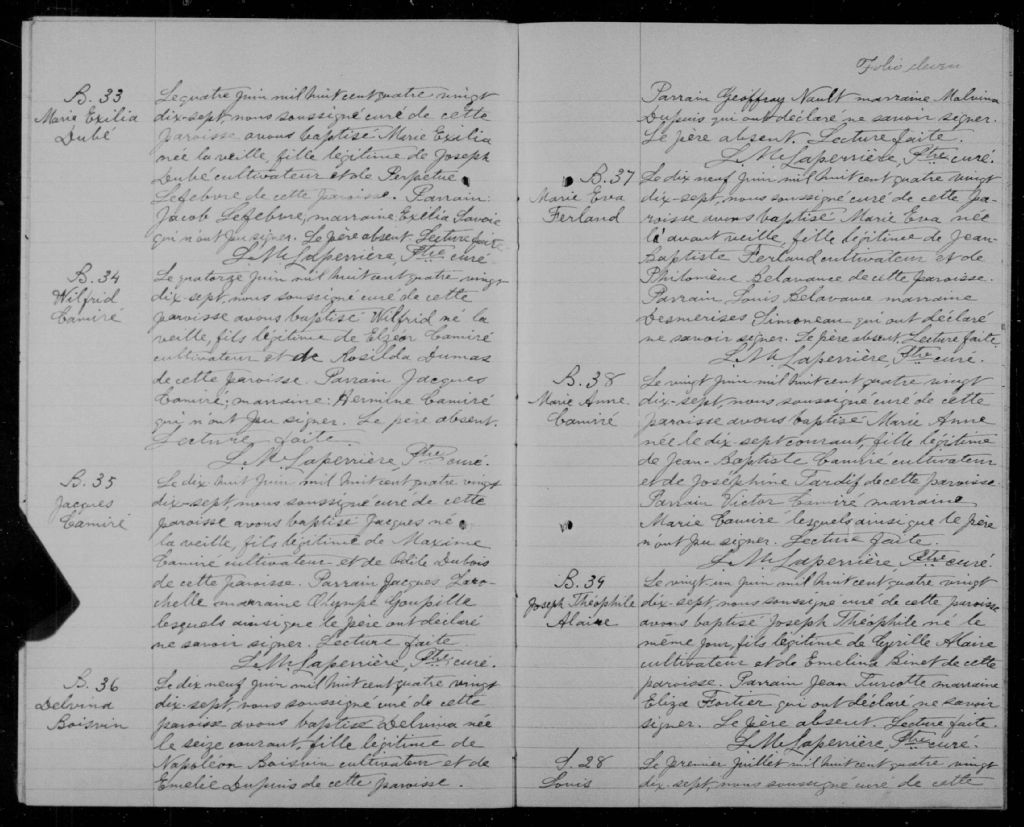 B. 33
Marie Exilia
Dubé
Le quatre juin mil huit cent quatre vingt
dix-sept, nous soussigné curé de cette
paroisse avons baptisé Marie Exilia
née la veille, fille légitime de Joseph
Dubé cultivateur et de Perpétue
Lefebvre de cette paroisse. Parrain:
Jacob Lefebvre, marraine Exilia Savoie
qui n'ont pu signer. Le père absent. Lecture faite
L. M. Laperrière, Ptre curé
B. 34
Wilfrid
Camiré
Le quatorze juin mil huit cent quatre vingt
dix-sept, nous soussigné curé de cette
paroisse avons baptisé Wilfrid né la
veille, fils légitime de Elzéor Camiré
cultivateur et de Rosilda Dumas
de cette paroisse. Parrain Jacques
Camiré; marraine: Hermine Camiré
qui n'ont pu signer. Le père absent.
Lecture faite
L. M. Laperrière, Ptre curé.
B. 35
Jacques
Camiré
Le dix huit juin mil huit cent quatre vingt
dix-sept, nous soussigné curé de cette
paroisse avons baptisé Jacques né
la veille, fils légitime de Maxime
Camiré cultivateur et de Odile Dubois
de cette paroisse. Parrain Jacques Laro-
chelle marraine Olympe Goupille
lesquels ainsi que le père ont déclaré
ne savoir signer. Lecture faite
L. M. Laperrière, Ptre curé.
B. 36
Delvina
Boisvin
Le dix neuf juin mil huit cent quatre vingt
dix-sept, nous soussigné curé de cette
paroisse avons baptisé Delvina née
le seize courant, fille légitime de
Napoléon Boisvin cultivateur et de
Emélie Dupuis de cette paroisse.
Folio
Parrain Geoffray Nault marraine Malvina
Dupuis qui ont déclaré ne savoir signer.
Le père absent. Lecture faite
L. M. Laperrière, Ptre curé.
B. 37
Marie Eva
Ferland
Le dix neuf juin mil huit cent quatre vingt
dix-sept, nous soussigné curé de cette pa-
roisse avons baptisé Marie Eva née
la avant veille, fille légitime de Jean-
Baptiste Ferland cultivateur et de
Philomène Belavance de cette paroisse.
Parrain Louis Belavance marraine
Desmerises Simoneau qui ont déclaré
ne savoir signer. Le père absent. Lecture faite
L. M. Laperrière, Ptre curé.
B. 38
Marie Anne
Camiré
Le vingt juin mil huit cent quatre vingt
dix-sept, nous soussigné curé de cette
paroisse avons baptisé Marie Anne
née le dix-sept courant, fille légitime
de Jean-Baptiste Camiré cultivateur
et de Joséphine Tardif de cette paroisse.
Parrain Victor Camiré marraine
Marie Camiré lesquels ainsi que le père
n'ont pu signer. Lecture faite.
L. M. Laperrière, Ptre curé.
B. 39
Joseph Théophile
Alaire
Le vingt un juin mil huit cent quatre vingt
dix-sept, nous soussigné curé de cette paroisse
avons baptisé Joseph Théophile né le
même jour, fils légitime de Cyrille Alaire
cultivateur et de Emelina Binet de cette
paroisse. Parrain Jean Turcotte marraine
Eliza Fortier qui ont déclaré ne savoir
signer. Le père absent. Lecture faite.
L. M. Laperrière, Ptre curé.
S. 28
Louis
Le premier juillet mil huit cent quatre vingt
dix-sept, nous soussigné curé de cette